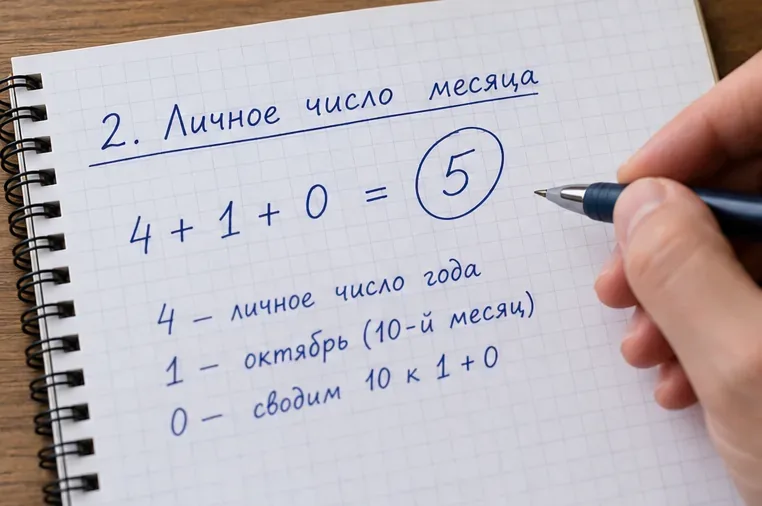 2. Личное число месяца
4 + 1 + 0 = 5
4 — личное число года
1 — октябрь (10-й месяц)
0 — сводим 10 к 1 + 0